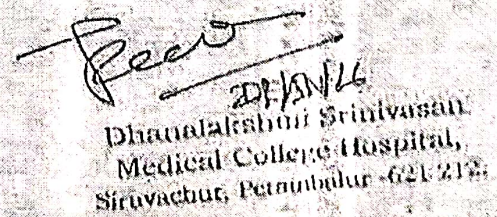 Dhanalakshmi Srinivasan
Medical College Hospital,
Siruvachur, Perambalur -621 212.